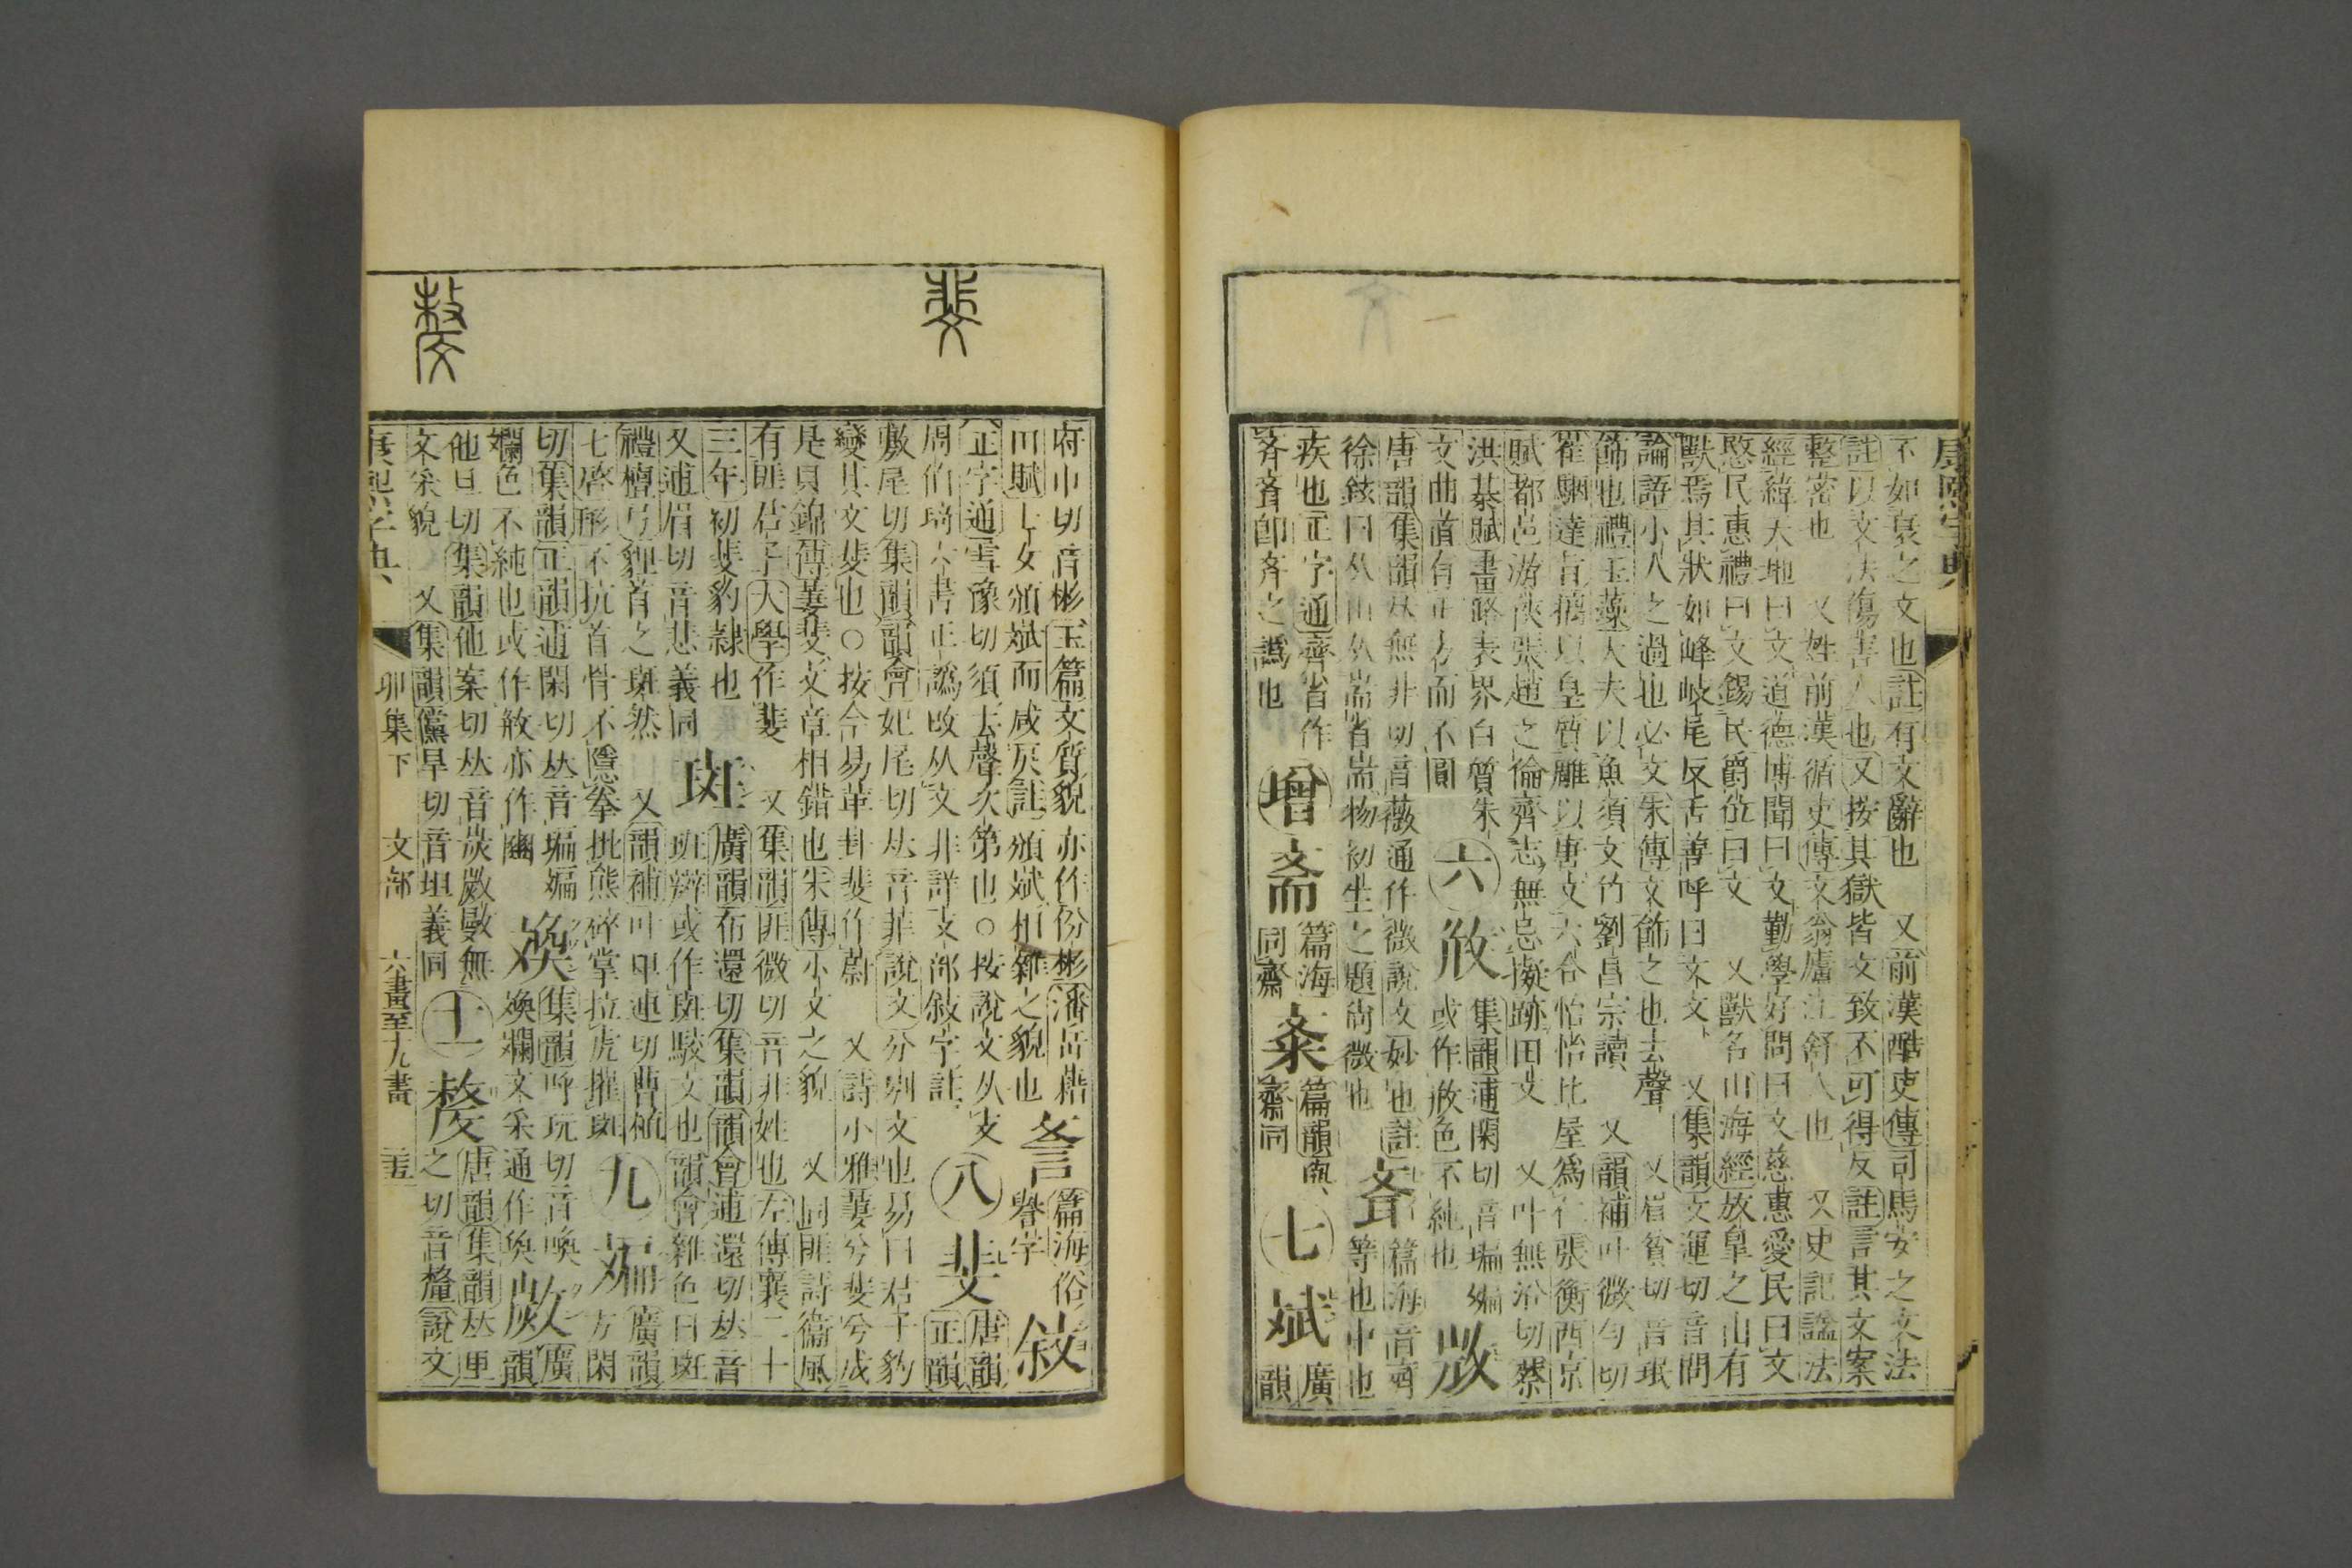 康熙字典
不如哀之文也註有文辭也 又前漢酷吏傳司馬安之文法
註以文法傷害人也又按其獄皆文致不可得反註言其文案
整密也 又姓前漢循吏傳文翁廬江舒人也 又史記諡法
經緯天地曰文道德博聞曰文勤學好問曰文慈惠愛民曰文
愍民惠禮曰文錫民爵位曰文 又獸名山海經放皐之山有
獸焉其狀如蜂岐尾反舌善呼曰文文 又集韻文運切音問
論語小人之過也必文朱傳文飾之也去聲 又眉貧切音珉
飾也禮玉藻大夫以魚須文竹劉昌宗讀 又韻補叶微勻切
崔駰達旨摛以皇質雕以唐文六合怡怡比屋爲仁張衡西京
賦都邑游俠張趙之倫齊志無忌擬跡田文 又叶無沿切蔡
洪棊賦畫路表界白質朱
文曲直有正方而不圓
六
㪰
集韻逋閑切音斒斒
或作㪰色不純也
唐韻集韻𠀤無非切音薇通作微說文妙也註
徐鉉曰从山从耑省耑物初生之題尚微也
篇海音齊
等也中也
疾也正字通齊省作
斉斉卽斉之譌也
增
斎
篇海
同齋
篇韻
齋同
七
斌
廣
韻
府巾切音彬玉篇文質貌亦作份彬潘岳藉
田賦士女頒斌而咸戾註頒斌相雜之貌也
篇海俗
譽字
敍
正字通雪豫切須去聲次第也○按說文从攴
周伯琦六書正譌攺从文非詳攴部敍字註
八
斐
唐韻
正韻
敷尾切集韻韻會妃尾切𠀤音菲說文分別文也易曰君子豹
變其文斐也○按今易革卦斐作蔚 又詩小雅萋兮斐兮成
是貝錦傳萋斐文章相錯也朱傳小文之貌 又同匪詩衞風
有匪君子大學作斐 又集韻匪微切音非姓也左傳襄二十
三年初斐豹隸也
又逋眉切音悲義同
斑
廣韻布還切集韻韻會逋還切𠀤音
班辬或作斑駁文也韻會雜色曰斑
禮檀弓貍首之斑然 又韻補叶𤰞連切曹植
七啓形不抗首骨不隱拳批熊碎掌拉虎摧斑
九
斒
廣韻
方閑
切集韻正韻逋閑切𠀤音斒斒
斕色不純也或作㪰亦作豳
㪱
集韻呼玩切音喚
㪱斕文采通作奐
廣
韻
他旦切集韻他案切𠀤音炭㪚㪚無
文采貌 又集韻儻旱切音坦義同
十一
斄
唐韻集韻𠀤里
之切音犛說文
康熙字典
卯集下
文部
六畫至十九畫
三五